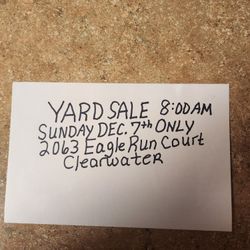 YARD SALE 8:00AM
SUNDAY DEC. 7th ONLY
2063 Eagle Run Court
Clearwater